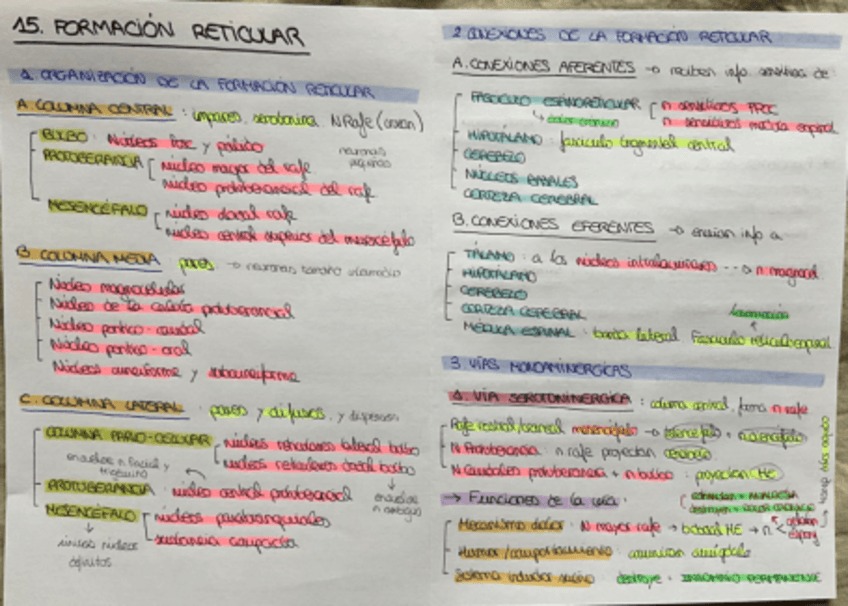 15. FORMACIÓN RETICULAR
1. ORGANIZACIÓN DE LA FORMACIÓN RETICULAR
A. COLUMNA CENTRAL: impares, serotonina. N Rafe
BULBO: Núcleos y pálido
neuronas pequeñas
PROTUBERANCIA núcleo mayor del rafe
núcleo protuberancial del rafe
MESENCÉFALO núcleo dorsal rafe
núcleo central superior del mesencéfalo
B. COLUMNA MEDIA pares → neuronas tamaño
Núcleo magnocelular
Núcleo de la calota protuberancial
Núcleo pontico-caudal
Núcleo pontico-oral
Núcleos cuneiforme y subcuneiforme
C. COLUMNA LATERAL: pares y difusos, y dispersos
COLUMNA PARVO-CELULAR núcleos reticulares lateral bulbo
núcleos reticulares dorsal bulbo
envuelve n facial y trigémino
PROTUBERANCIA: núcleo central protuberancial
envuelve n ambiguo
MESENCÉFALO núcleos parabraquiales
sustancia compacta
únicos núcleos definitos
2 CONEXIONES DE LA FORMACIÓN RETICULAR
A. CONEXIONES AFERENTES → reciben info sensitiva de
FASCÍCULO ESPINORETICULAR n sensitivos TROC
dolor crónico n sensitivos médula espinal
HIPOTÁLAMO: fascículo tegmental central
CEREBELO
NÚCLEOS BASALES
CORTEZA CEREBRAL
B. CONEXIONES EFERENTES → envían info a
TÁLAMO: a los núcleos intralaminares
HIPOTÁLAMO
CEREBELO
CORTEZA CEREBRAL
MÉDULA ESPINAL: banda lateral Fascículo reticuloespinal
3. VÍAS MONOAMINÉRGICAS
1. VÍA SEROTONINÉRGICA: columna central, forma n rafe
Rafe mesencéfalo →
N Protuberancia: n rafe proyectan cerebelo
N Caudales protuberancia + n bulbo: proyectan ME
→ Funciones de la vía:
estimulan = ANALGESIA
destruyen = DOLOR CRÓNICO
Mecanismo dolor: N mayor rafe → ME → n
Humor/comportamiento: comunican amígdala
Sistema inductor sueño: destruye = INSOMNIO PERMANENTE